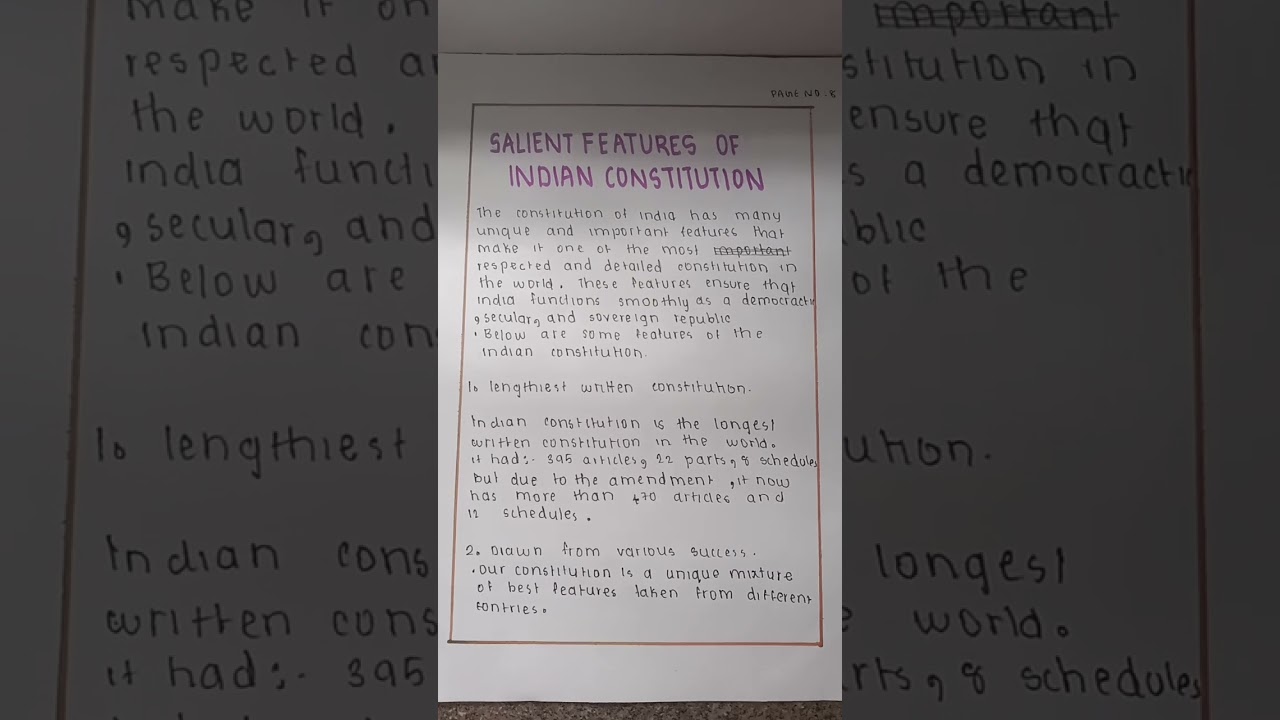 PAGE NO : 8
SALIENT FEATURES OF
INDIAN CONSTITUTION
The constitution of india has many
unique and important features that
make it one of the most important
respected and detailed constitution in
the world. These features ensure that
india functions smoothly as a democractic
, secular, and sovereign republic
• Below are some features of the
indian constitution.
1. lengthiest written constitution.
Indian constitution is the longest
written constitution in the world.
it had:- 395 articles, 22 parts, 8 schedules
but due to the amendment , it now
has more than 470 articles and
12 schedules.
2. Drawn from various success.
• Our constitution is a unique mixture
of best features taken from different
contries.